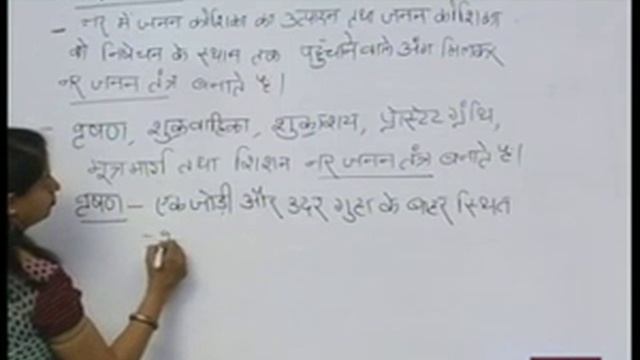 - नर में जनन कोशिका का उत्पादन तथा जनन कोशिका
को निषेचन के स्थान तक पहुंचाने वाले अंग मिलकर
नर जनन तंत्र बनाते है।
- वृषण, शुक्रवाहिका, शुक्राशय, प्रोस्टेट ग्रंथि,
मूत्रमार्ग तथा शिशन नर जनन तंत्र बनाते है।
वृषण - एक जोड़ी और उदर गुहा के बाहर स्थित
-